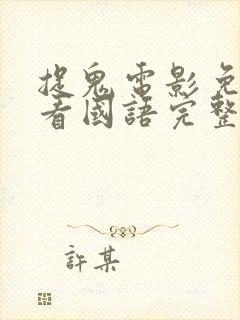 捉鬼電影免
看國語完整
許某